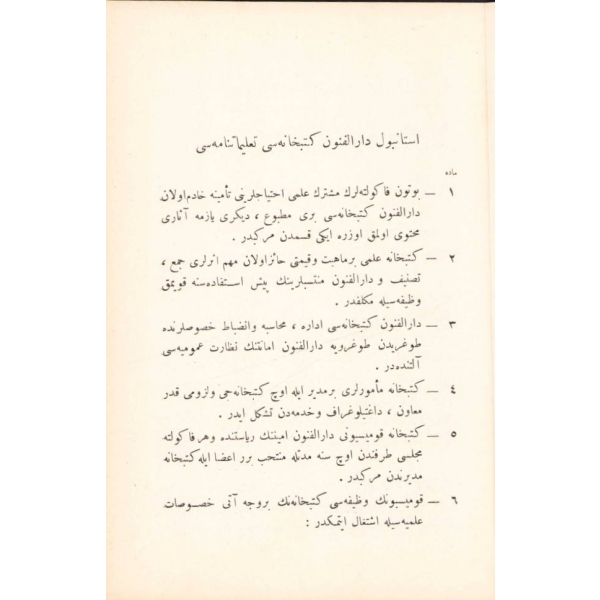 استانبول دارالفنون كتبخانه‌سی تعلیماتنامه‌سی
ماده
١ — بوتون فاكولته‌لرك مشترك علمی احتیاجلرینی تأمینه خادم اولان
دارالفنون كتبخانه‌سی بری مطبوع ، دیكری یازمه آثاری
محتوی اولمق اوزره ایكی قسمدن مركبدر .
٢ — كتبخانه علمی بر ماهیت وقیمتی حائز اولان مهم اثرلری جمع ،
تصنیف و دارالفنون منتسبلرینك پیش استفاده‌سنه قویمق
وظیفه‌سیله مكلفدر .
٣ — دارالفنون كتبخانه‌سی اداره ، محاسبه وانضباط خصوصلرنده
طوغریدن طوغرویه دارالفنون امانتنك نظارت عمومیه‌سی
آلتنده‌در .
٤ — كتبخانه مأمورلری بر مدیر ایله اوچ كتبخانه‌جی ولزومی قدر
معاون ، داغتیلوغراف وخدمه‌دن تشكل ایدر .
٥ — كتبخانه قومیسیونی دارالفنون امیننك ریاستنده وهر فاكولته
مجلسی طرفندن اوچ سنه مدتله منتخب برر اعضا ایله كتبخانه
مدیرندن مركبدر .
٦ — قومیسیونك وظیفه‌سی كتبخانه‌نك بروجه آتی خصوصات
علمیه‌سیله اشتغال ایتمكدر :